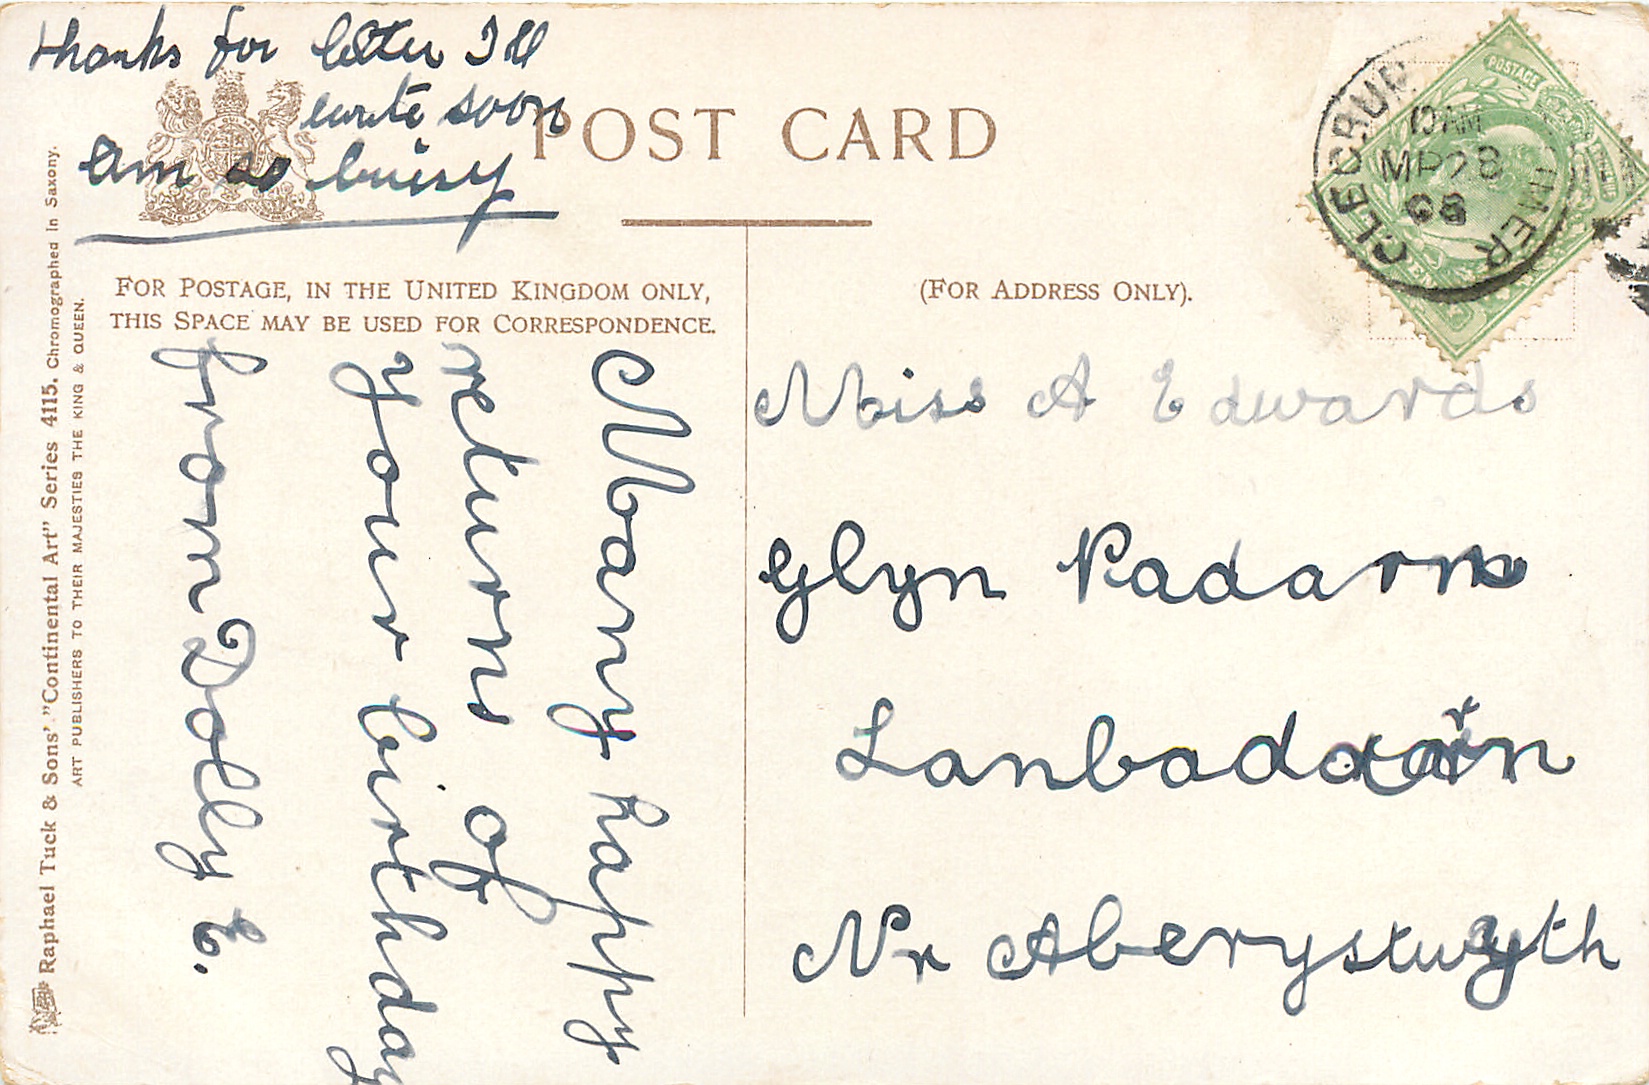 thanks for letter I'll
write soon
am so buisy
POST CARD
FOR POSTAGE, IN THE UNITED KINGDOM ONLY,
THIS SPACE MAY BE USED FOR CORRESPONDENCE.
(FOR ADDRESS ONLY).
Many happy
returns of
your birthday
from Dolly E.
Miss A Edwards
Glyn Padarn
Lanbadarn
Nr Aberystwyth
POSTAGE
CLEOBURY
MORTIMER
MR 28
08
Raphael Tuck & Sons' "Continental Art" Series 4115. Chromographed in Saxony.
ART PUBLISHERS TO THEIR MAJESTIES THE KING & QUEEN.